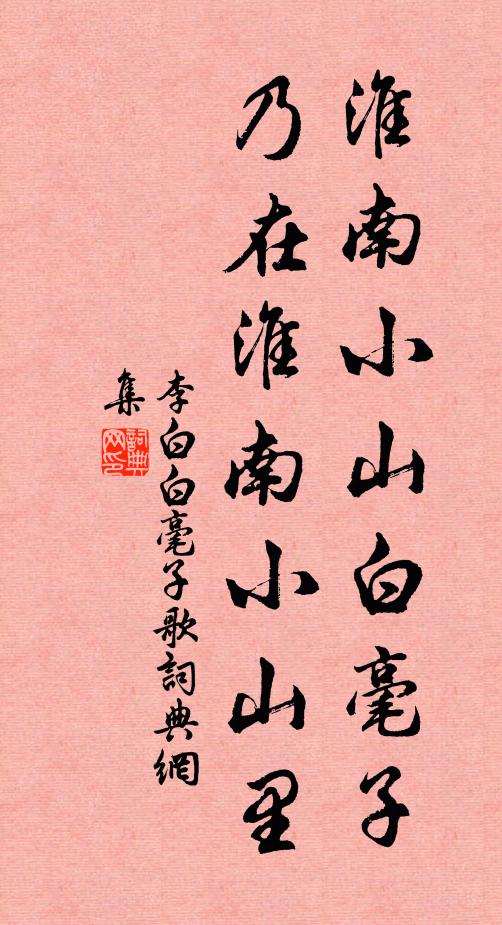 淮南小山白毫子
乃在淮南小山里
李白白毫子歌詞典網
集
詞典网印